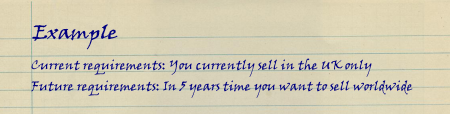 Example
Current requirements: You currently sell in the UK only
Future requirements: In 5 years time you want to sell worldwide